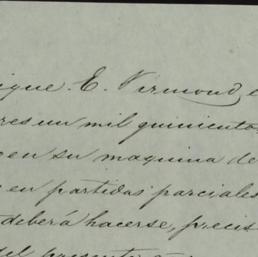 ique. E. Vizmond e
res un mil quinientos
en su maquina de
en partidas parciales
deberá hacerse, precis
del presente